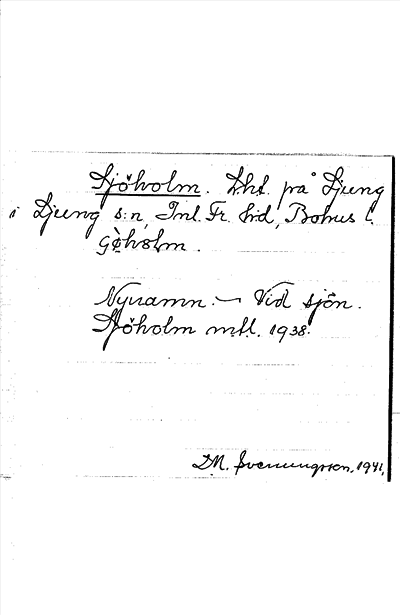 Sjöholm. Lht. på Ljung
i Ljung s:n, Inl. Fr. hd, Bohus l.
Nynamn. — Vid sjön.
Sjöholm mtl. 1938.
D.M. Svenungsson. 1941.